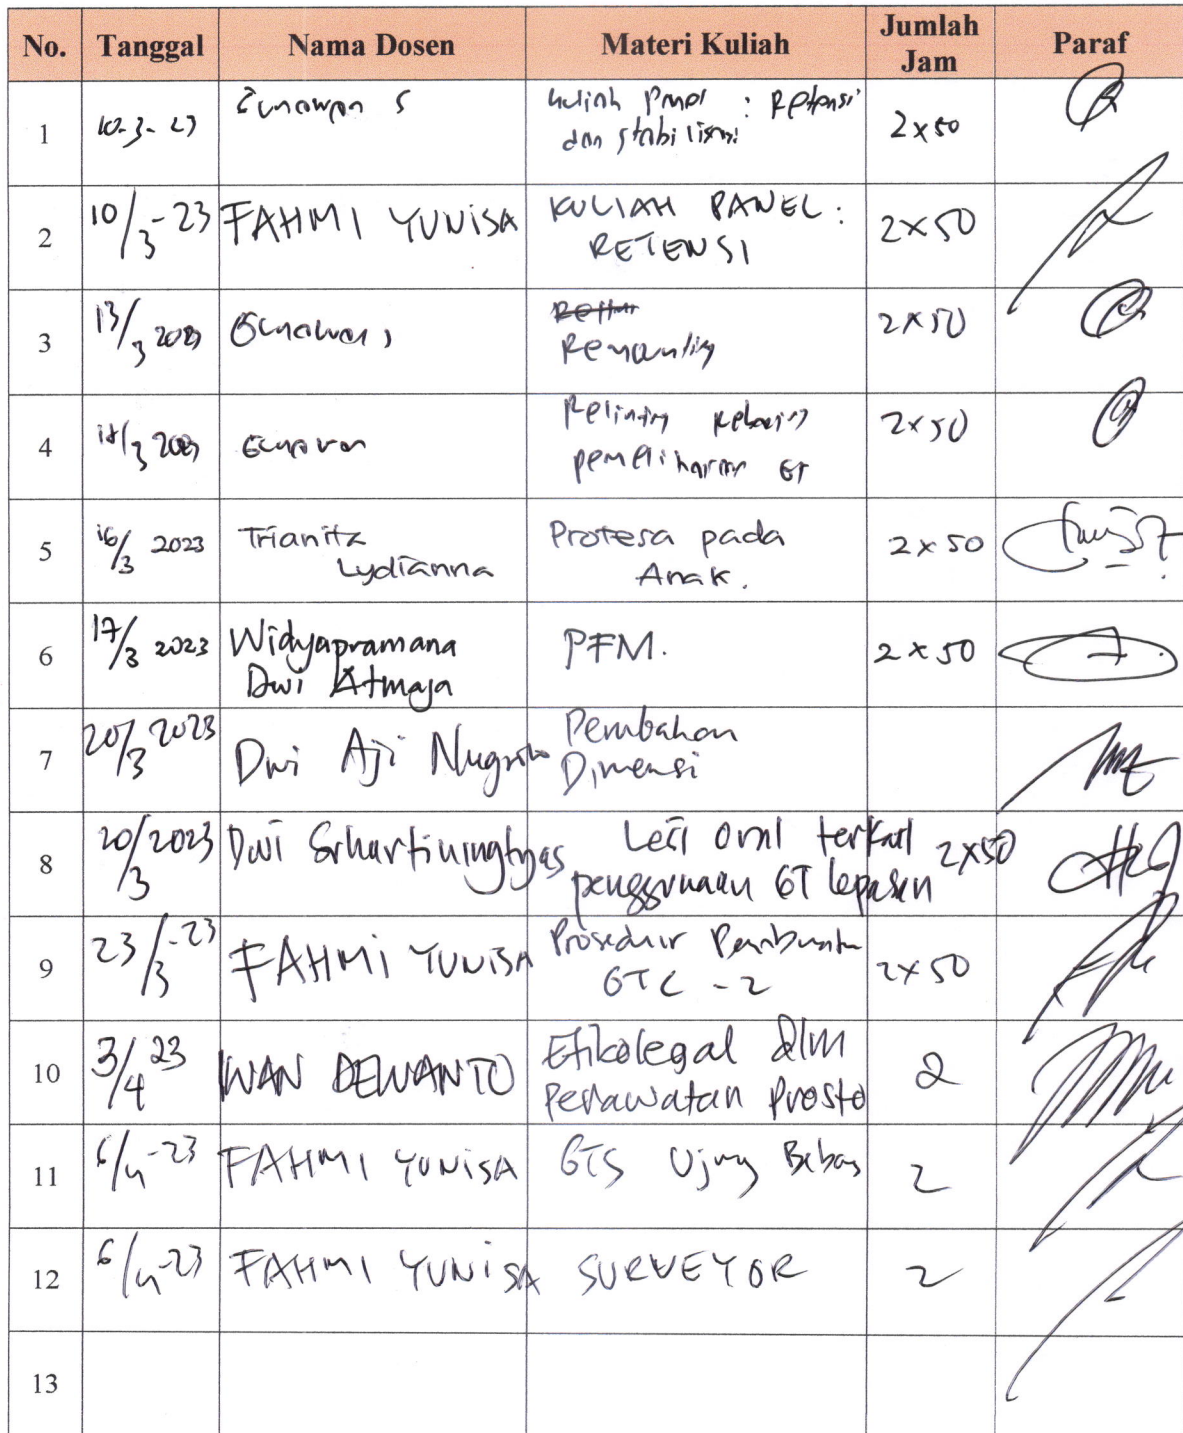 No. Tanggal Nama Dosen Materi Kuliah Jumlah Jam Paraf
1 10-3-23 Gunawan S Kuliah Panel : Retensi
dan stabilisasi 2x50
2 10/3-23 FAHMI YUNISA KULIAH PANEL :
RETENSI 2x50
3 13/3 2023 Gunawan S
Remounting 2x50
4 3 2023 Gunawan Relining Rebasing
pemeliharaan GT 2x50
5 16/3 2023 Trianita
Lydianna Protesa pada
Anak. 2x50
6 17/3 2023 Widyapramana
Dwi Atmaja PFM. 2x50
7 20/3 2023 Dwi Aji Nugroho Perubahan
Dimensi
8 20/3 2023 Dwi Suhartiningtyas Lesi oral terkait
penggunaan GT lepasan 2x50
9 23/3-23 FAHMI YUNISA Prosedur Pembuatan
GTC - 2 2x50
10 3/4 23 IWAN DEWANTO Etikolegal dlm
Perawatan Prosto 2
11 6/4-23 FAHMI YUNISA GTS Ujung Bebas 2
12 6/4-23 FAHMI YUNISA SURVEYOR 2
13